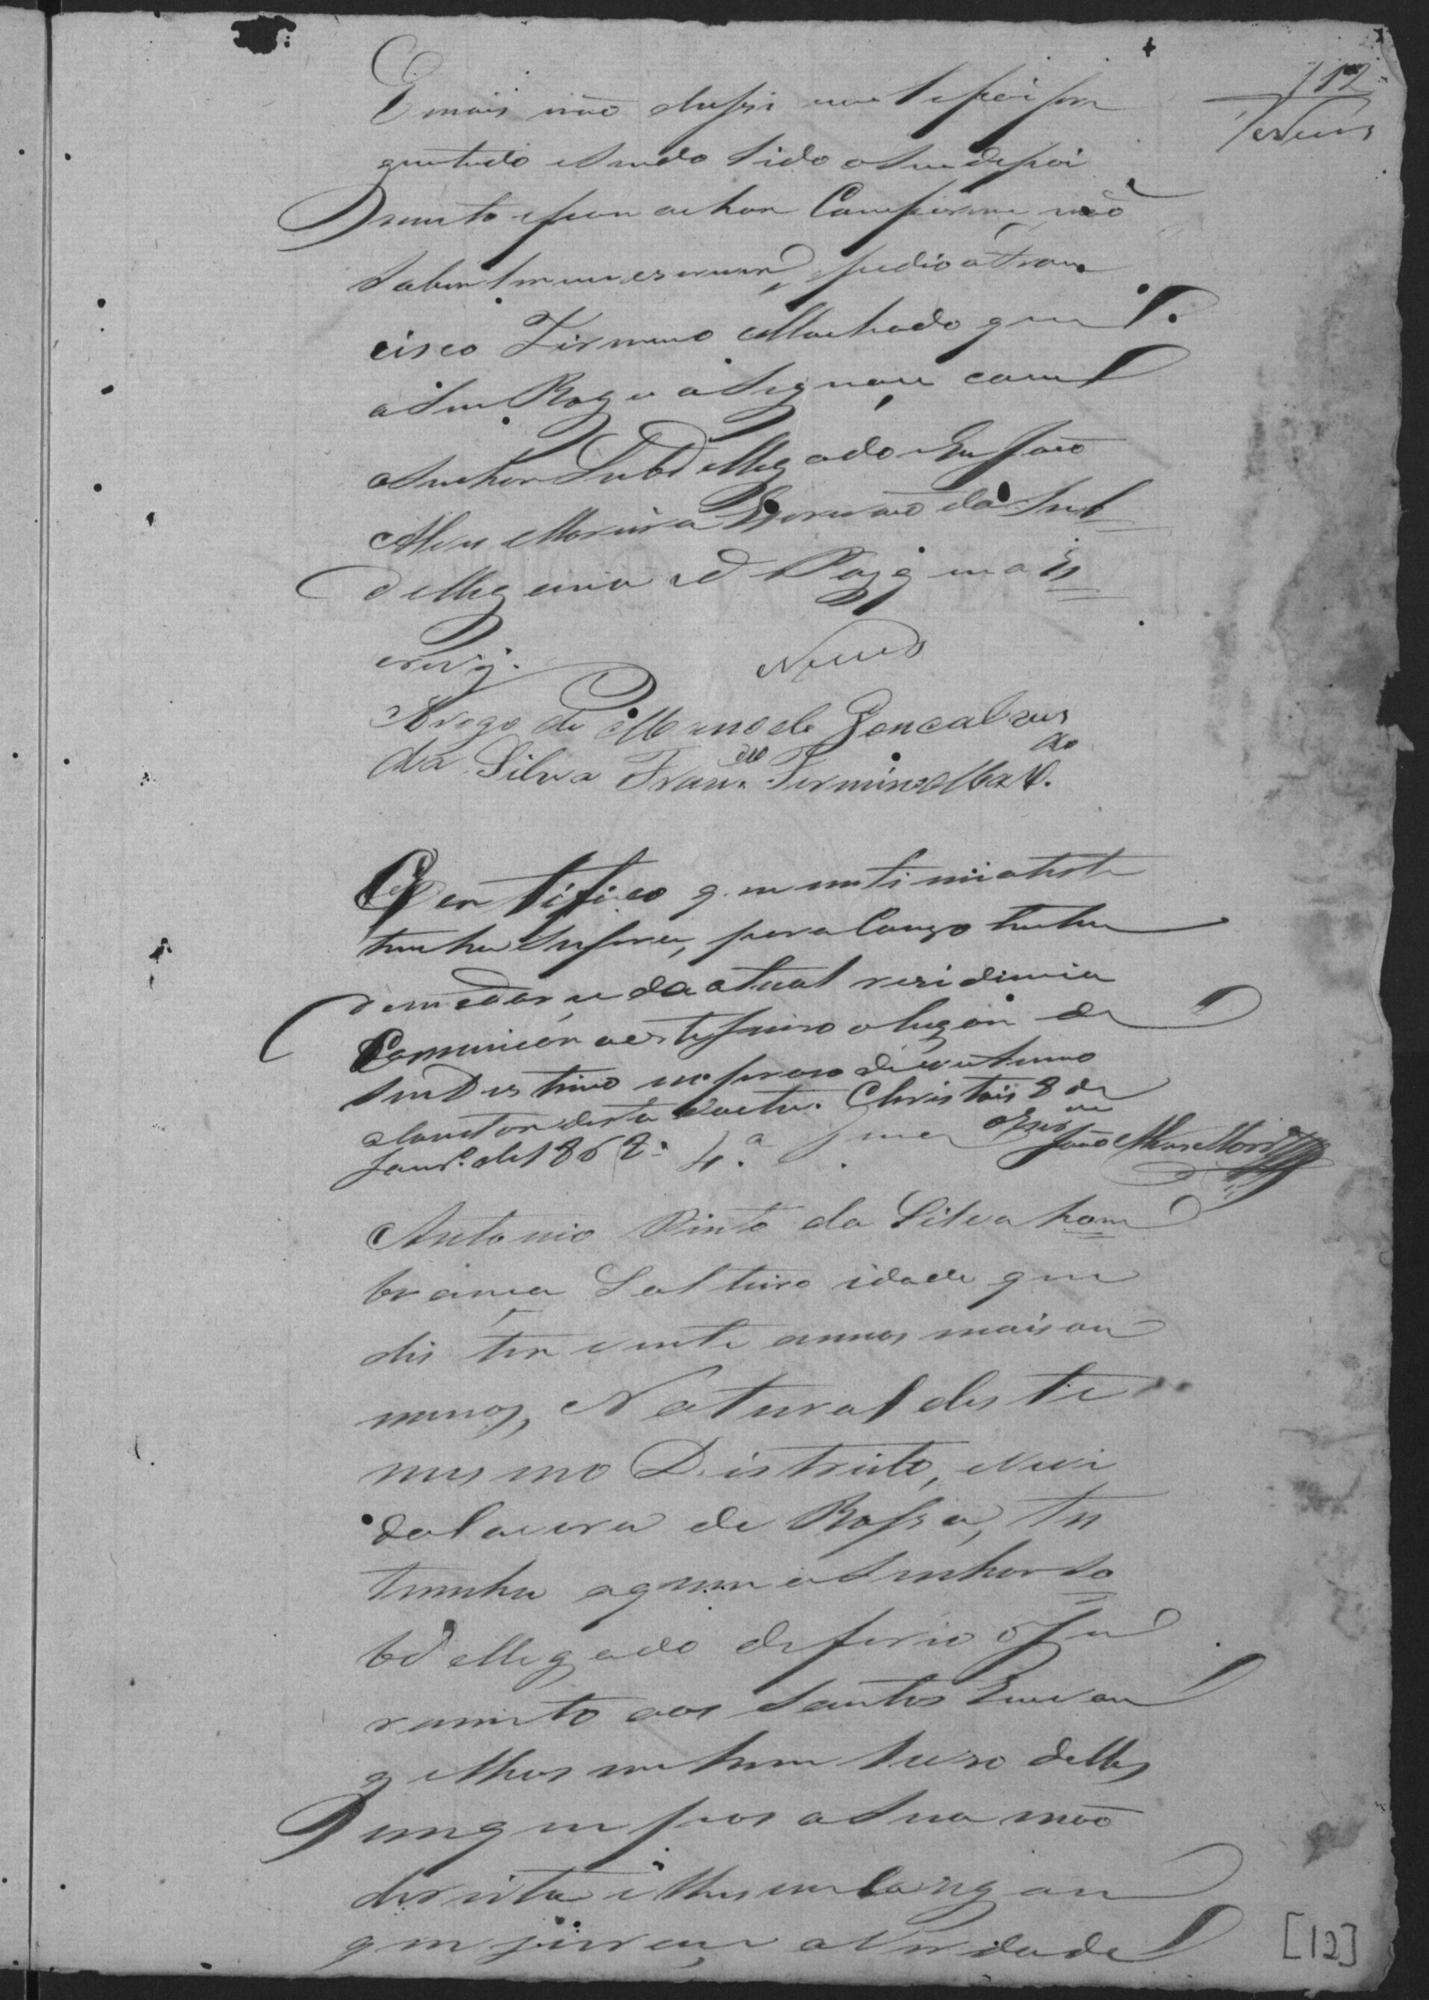 12
Neves
E mais não disse nem lhe foi per
guntado e sendo lido o seu depoi
mento e por achar Comforme, não
saber ler nem escrever, pedio a Fran
cisco Firmino Machado que
a seu Rogo assignace com
o Senhor Subdellegado Eu João
Alves Moreira Escrivão da Sub
dellegacia e de Paz que o es
crevy.
Neves
A rogo de Manoele Goncalves
da Silva Fran.co Firmino Maxdo.
Certifico que entimei a teste
munha supra, para Cauzo tenha
de mudar ce da atual residencia
Comunicar a este Juizo o lugar de
seu Destino no prazo de um anno
a contar desta dacta. Christais 8 de
Janro. de 1862. O Esuam João Alves Morra
4.a
Antonio Pinto da Silva hom
branca Solteiro idade que
dis ter vinte annos mais ou
menos, Natural deste
mesmo Districto, vive
da lavora de Rossa, tes
temunha a quem o Senhor So
bdellegado deferio o Ju
ramento aos Santos Euvan
gelhos em hum livro delles
em que pos a sua mão
direita e lhe emcaregou
que jurace a Verdade
[12]